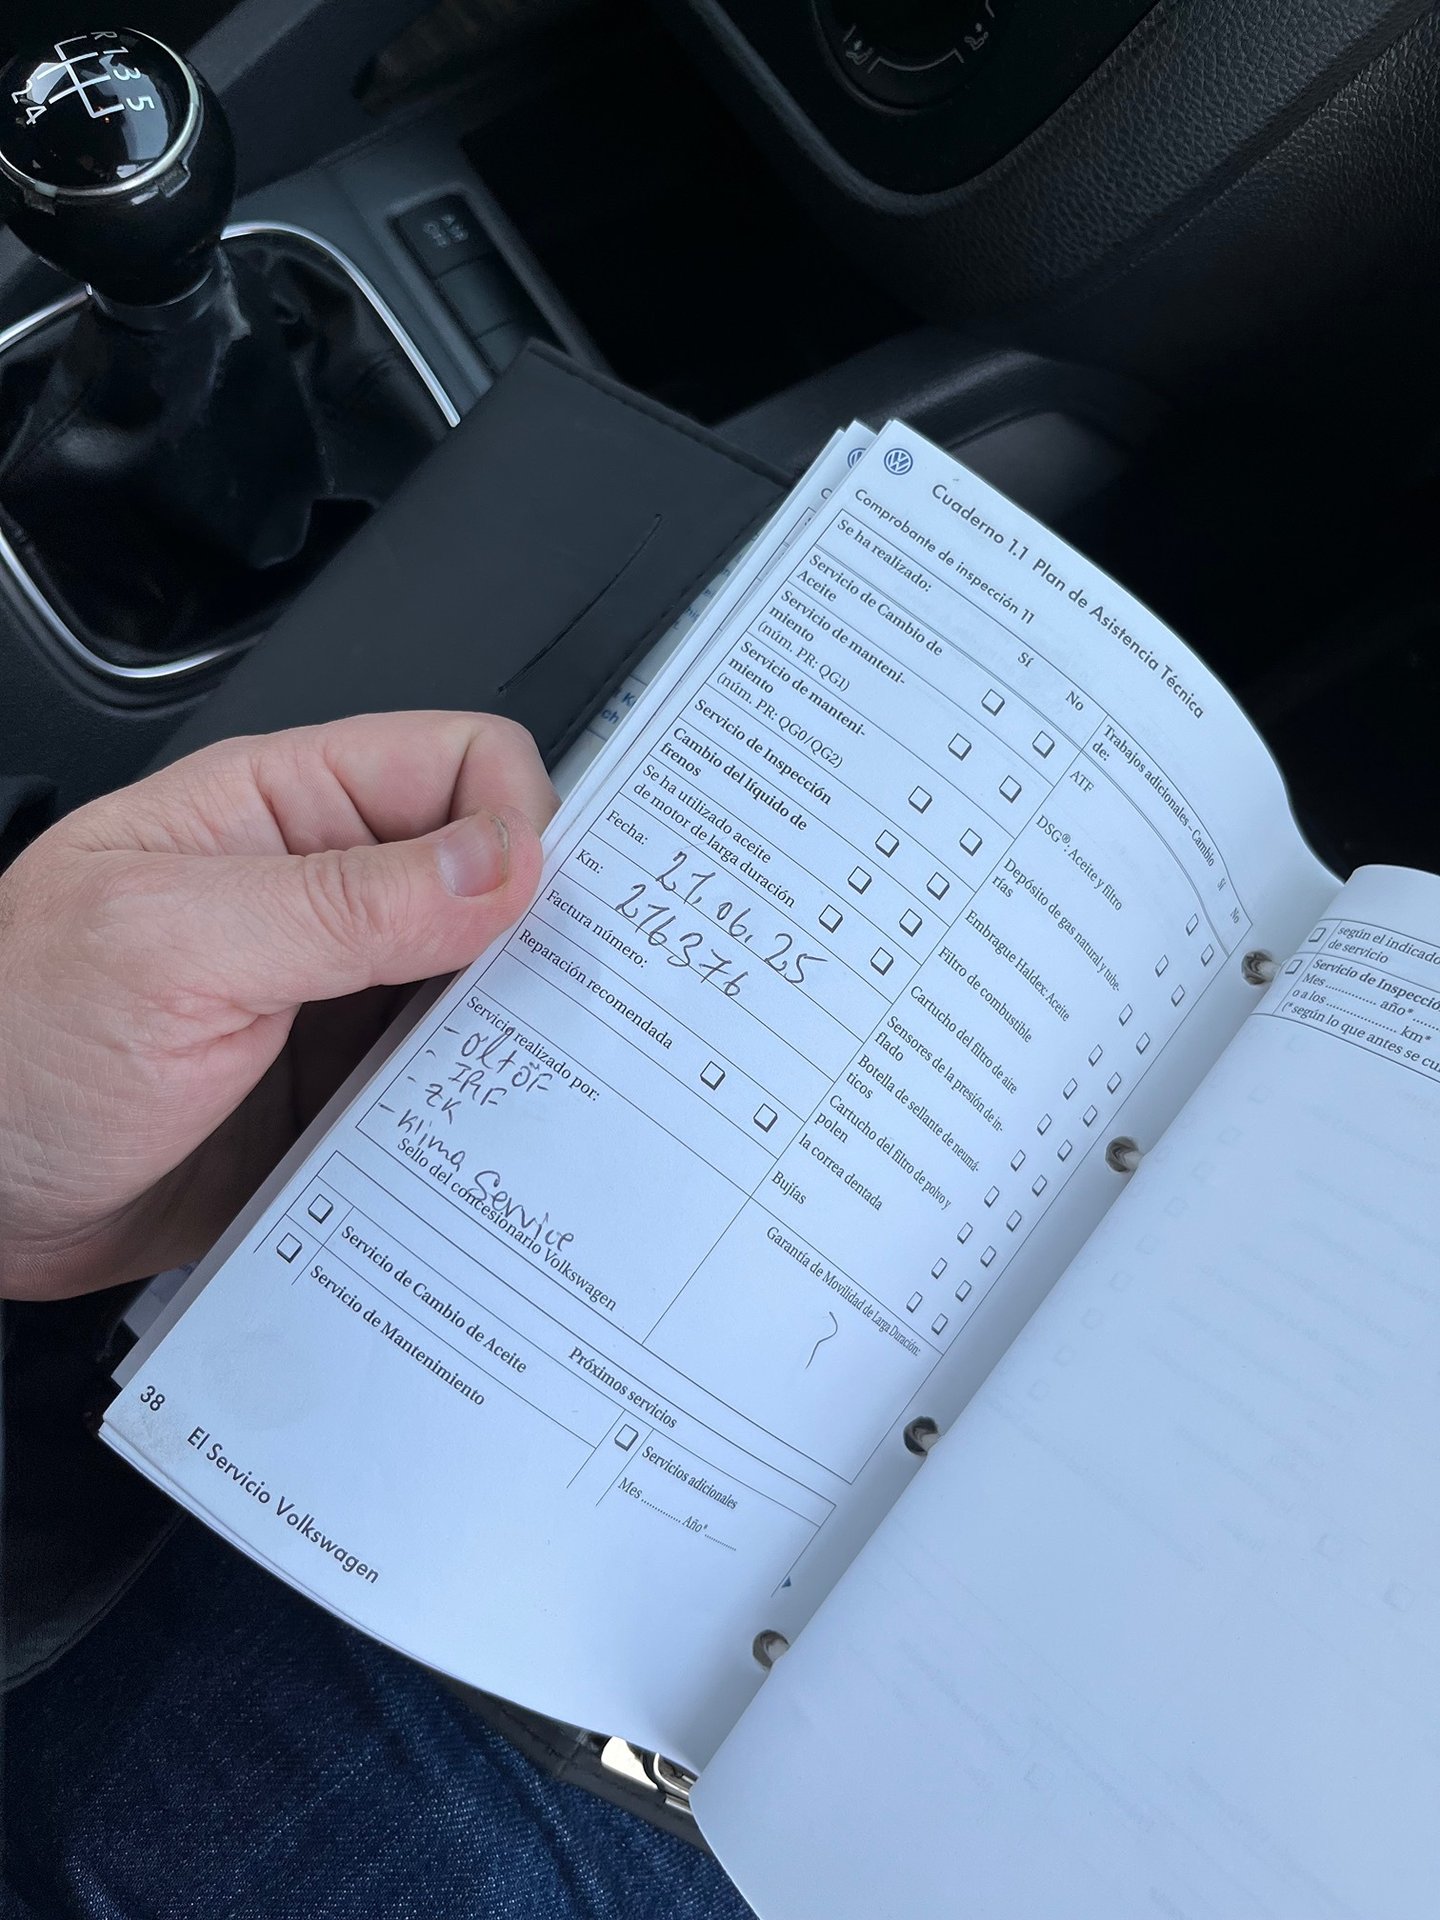 R 1 3 5
2 4
A
OFF
Cuaderno 1.1 Plan de Asistencia Técnica
Comprobante de inspección 11
Se ha realizado:
Sí
No
Servicio de Cambio de
Aceite
Servicio de manteni-
miento
(núm. PR: QG1)
Servicio de manteni-
miento
(núm. PR: QG0/QG2)
Servicio de Inspección
Cambio del líquido de
frenos
Se ha utilizado aceite
de motor de larga duración
Fecha: 27.06.25
Km: 276376
Factura número:
Reparación recomendada
Servicio realizado por:
- Öl + ÖF
- IRF
- ZK
- Klima Service
Sello del concesionario Volkswagen
Trabajos adicionales – Cambio
de:
Sí
No
ATF
DSG®: Aceite y filtro
Depósito de gas natural y tube-
rías
Embrague Haldex: Aceite
Filtro de combustible
Cartucho del filtro de aire
Sensores de la presión de in-
flado
Botella de sellante de neumá-
ticos
Cartucho del filtro de polvo y
polen
la correa dentada
Bujías
Garantía de Movilidad de Larga Duración:
Próximos servicios
Servicio de Cambio de Aceite
Servicio de Mantenimiento
Servicios adicionales
Mes .............. Año* ..........
38
El Servicio Volkswagen
según el indicado
de servicio
Servicio de Inspecció
Mes .............. año* ......
o a los .................. km*
(*según lo que antes se cu